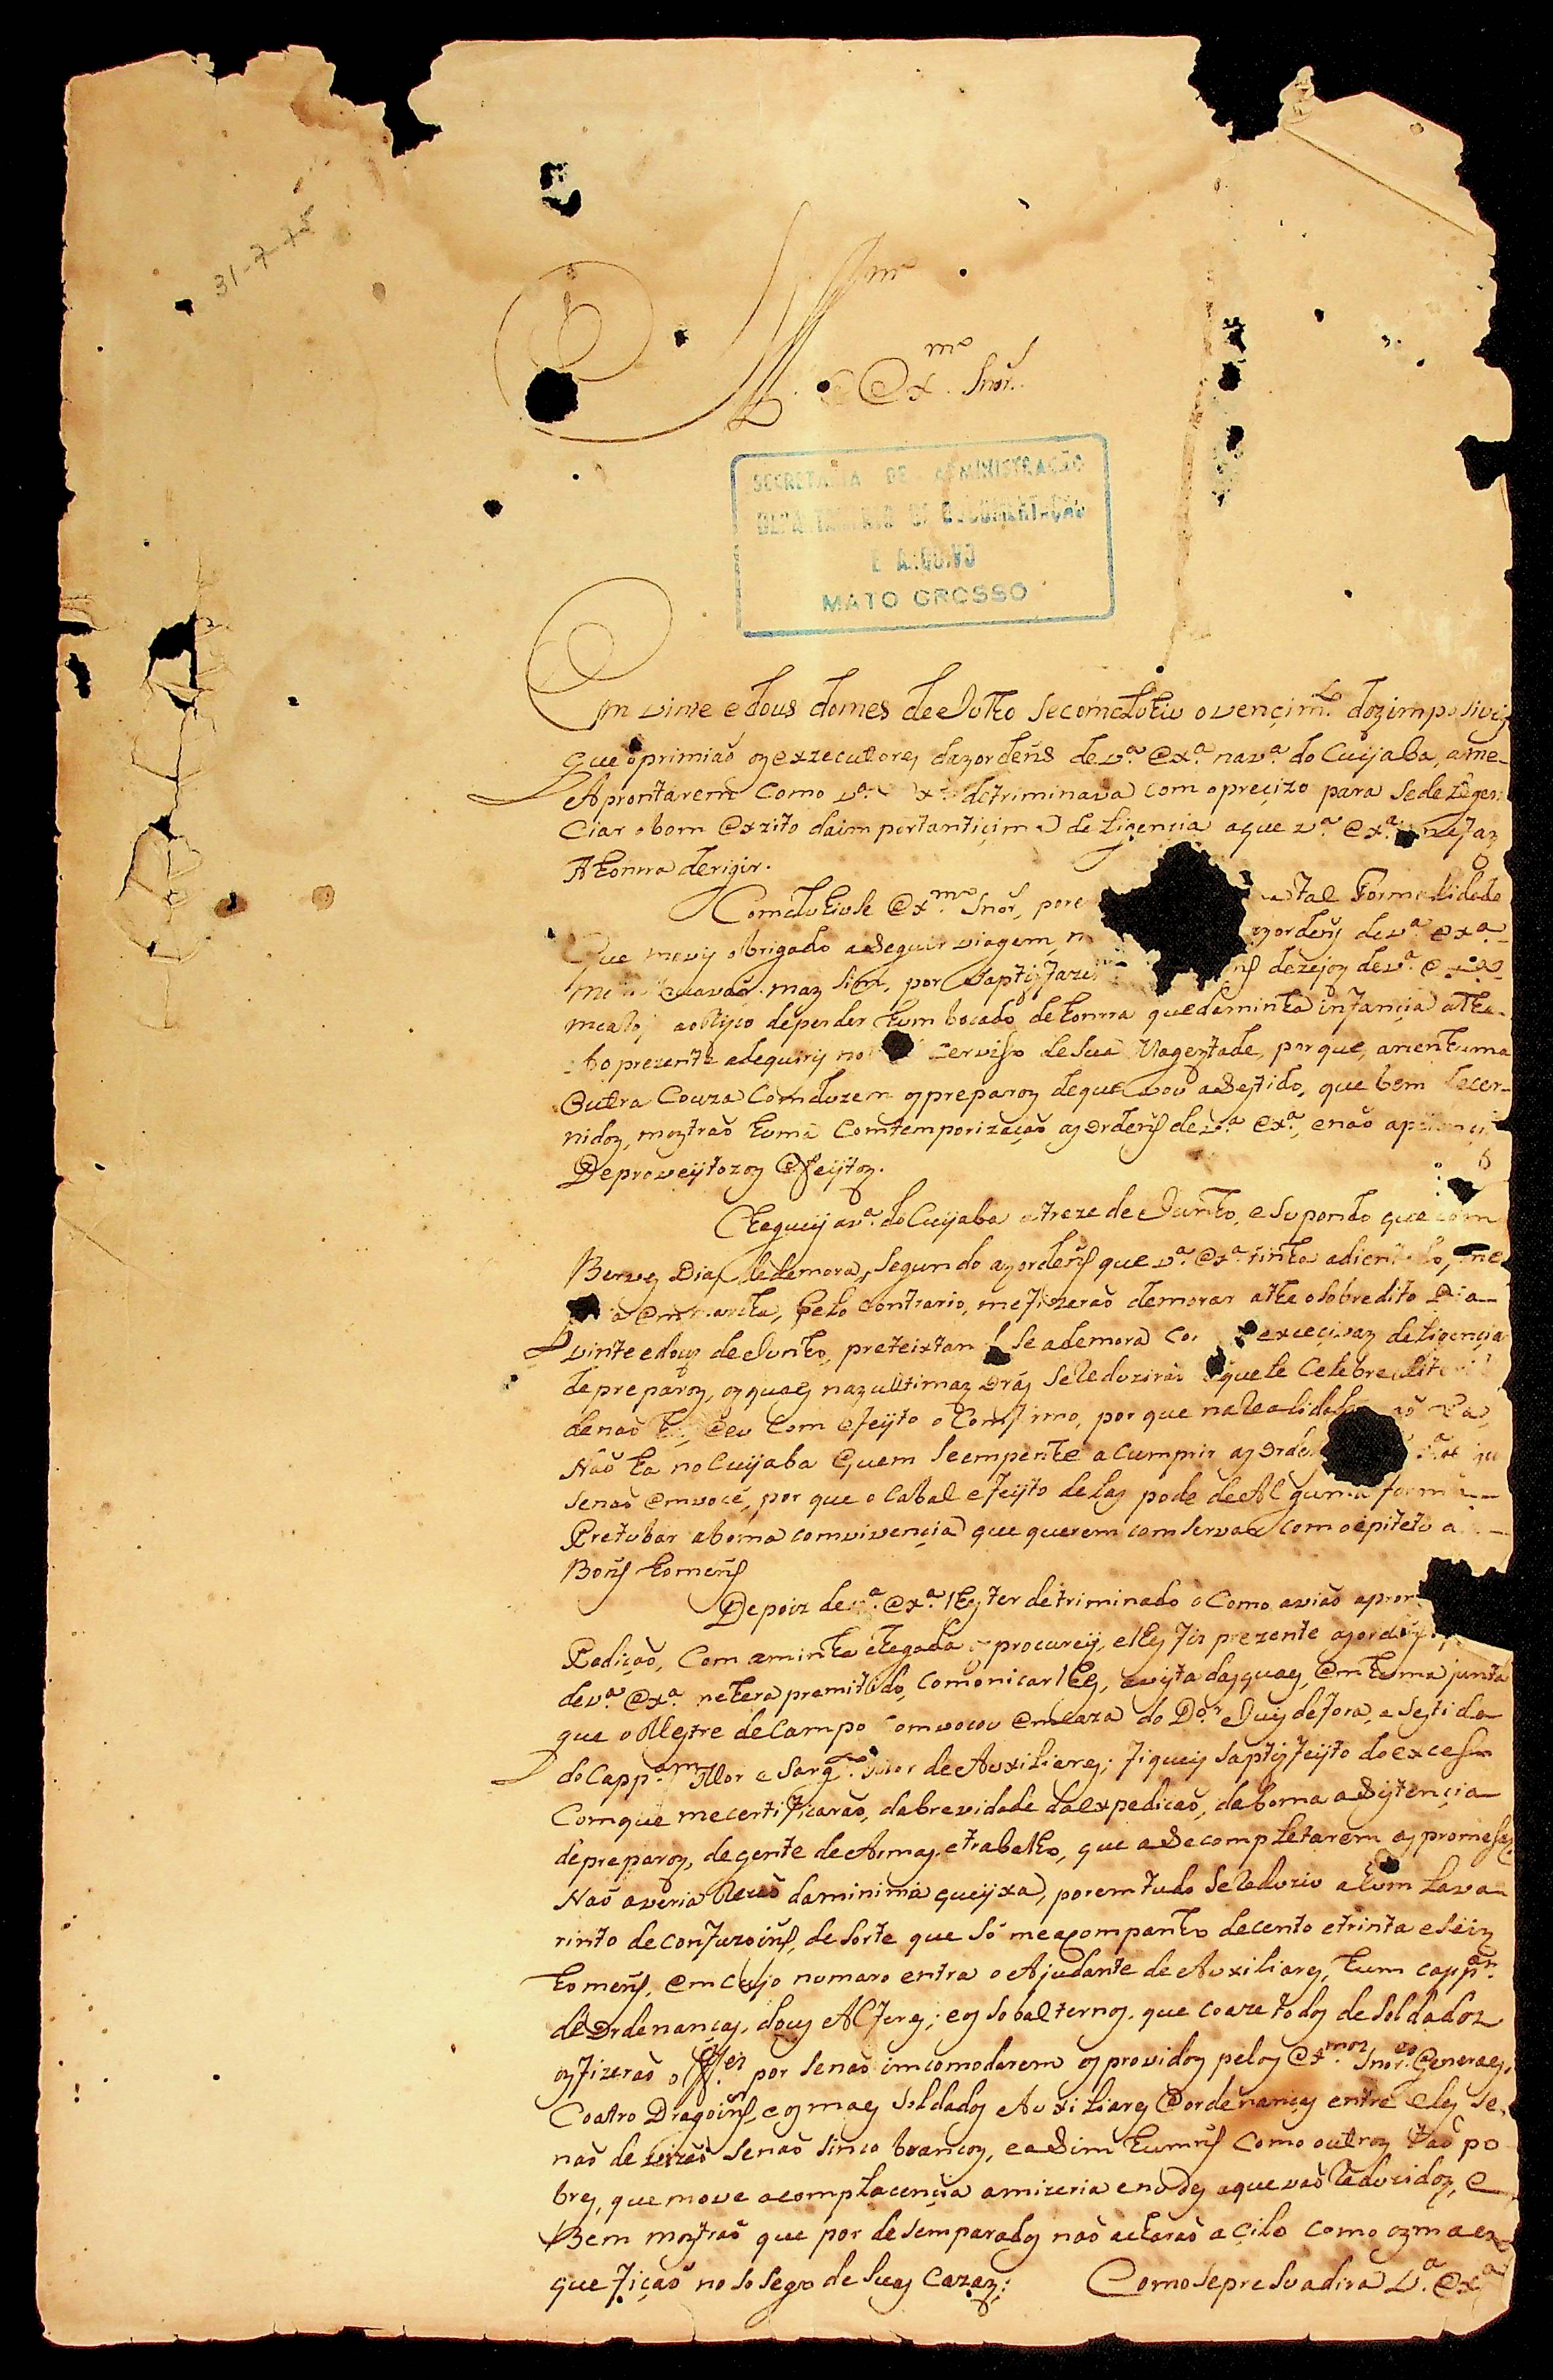 31-7-75
Ill.mo
e Ex.mo Snor.
SECRETARIA DE ADMINISTRAÇÃO
DEPARTAMENTO DE DOCUMENTAÇÃO
E ARQUIVO
MATO GROSSO
Em vinte e dous do mes de Julho se comcluhiu o vençim.to dos imposiveis
que oprimiaõ os exzecutores das ordeñs de v.a Ex.a na v.a do Cuijaba, a me
Aprontarem como v.a Ex.a detriminava com o precizo para se
Ciar o bom Exzito da importantiçima deligencia a que v.a Ex.a
A honrra derigir.
Comcluhiuse Ex.mo Snor, tal Formalidade
Que me vij obrigado a Seguir viagem, as ordeñs de v.a Ex.a
mas sim, por Saptisfazer dezejos de v.a Ex.a
de perder hum bocado de honrra que da minha infançia athe
o prezente adequirij no Serviso de Sua Magestade, por que, a nenhuma
Outra Couza Comduzem os preparos de que vou asestido, que bem decer-
nidos, mostraõ huma Comtemporizaçaõ as Ordeñs de v.a Ex.a, e naõ
De proveijtozos Efeijtos.
Cheguij a v.a do Cuijaba a treze de Junho, e Supondo que com
Berves Dias de demora, Segundo as ordeñs que v.a Ex.a tinha adientado, me
em marcha, pelo contrario, me fizeraõ demorar athe o sobredito Dia
vinte e dous de Junho, preteixtan se a demora com exceçivas deligençias
de preparos, os quaes nas ultimas Oras se Reduziraõ aquele Celebre
de naõ ha, e eu com efeijto o Comfirmo, por que na Realidade naõ ha,
Naõ ha no Cuijaba Quem se empenhe a Cumprir as Orde
senaõ em voçe, por que o Cabal efeijto delas pode de Alguma forma
Pretubar a boma comvivençia que querem comservar com o epiteto
Boñs homeñs
Depois de v.a Ex.a lhes ter detriminado o Como aviaõ
Pediçaõ, Com a minha chegada os procureij, e lhes fis prezente as ordeñs
de v.a Ex.a me hera premitido, comonicar lhes, a vista das quaes, Em huma junta
que o Mestre de Campo Comvocou Em caza do D.or Juis de fora, asestida
do Capp.am Mor e Sarg.to Mor de Auxiliares; fiqueij saptisfeijto do exceso
Com que me certificaraõ, da brevidade da expediçaõ, da boma asistençia
de preparos, de gente de Armas e trabalho, que a Se completarem as promesas
Naõ averia Rezaõ da minima queijxa, porem tudo se Reduzio a hum Lava-
rinto de confuzoiñs, de sorte que só me acompanho de cento e trinta e seis
homeñs, em Cujo numaro entra o Ajudante de Auxiliares, hum capp.am
de Ordenanças, dous Alferes; e os sobalternos, que coaze todos de soldados
os fizeraõ of.es por senaõ imcomodarem os providos pelos Ex.mos Snor.es Generaes,
Coatro Dragoiñs, e os maes Soldados Auxiliares e Ordenanças entre eles se
naõ devizaõ senaõ sinco brancos, e asim huñs como outros taõ po
bres, que move a complacençia a mizeria e nudes a que vaõ Reduzidos, e
Bem mostraõ que por desemparados naõ acharaõ açilo como os maes
que ficaõ no sosego de suas Cazas; Como se presuadira v.a Ex.a